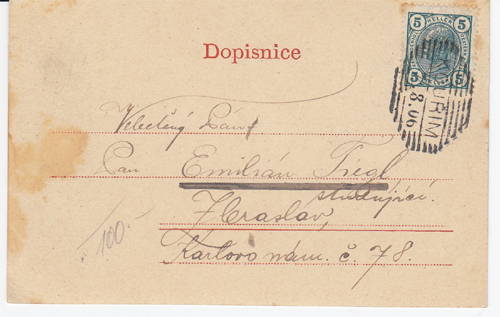 Dopisnice
5 HELLER 5
5 5
KOUŘIM
8.06
Velectěný Pán
Pan Emilián Fiegl
studující.
Zbraslav,
Karlovo nám. č. 78.
100.-